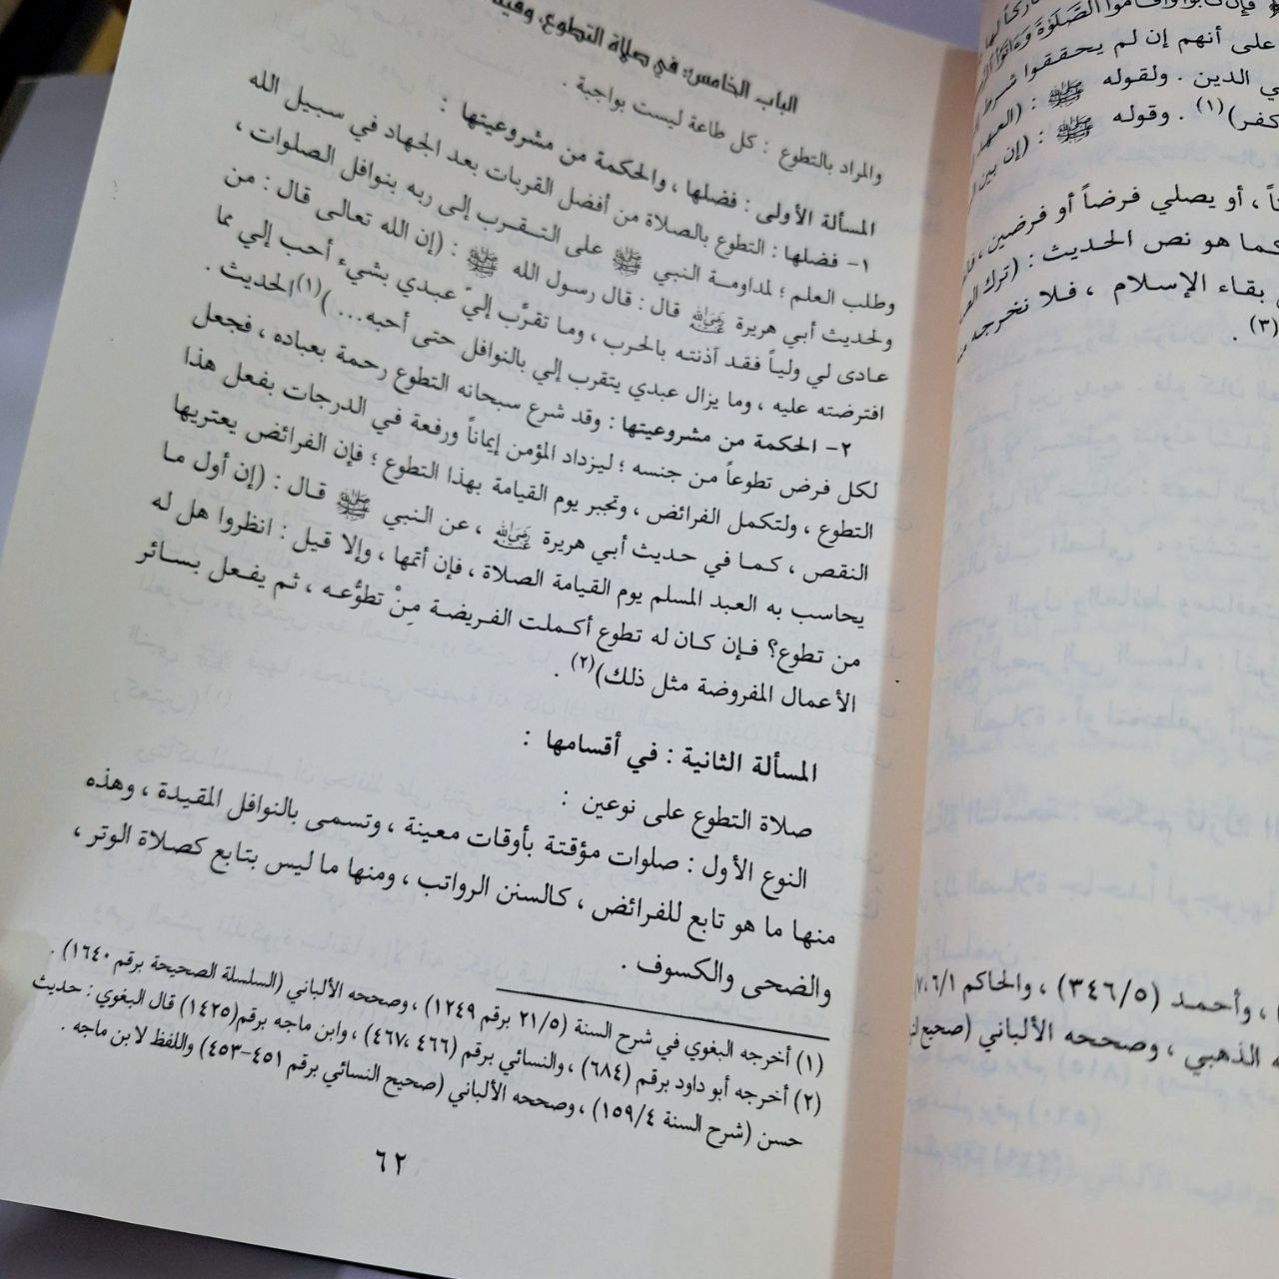 الباب الخامس: في صلاة التطوع،
والمراد بالتطوع : كل طاعة ليست بواجبة .
المسألة الأولى : فضلها ، والحكمة من مشروعيتها :
١- فضلها : التطوع بالصلاة من أفضل القربات بعد الجهاد في سبيل الله
وطلب العلم ؛ لمداومة النبي ﷺ على التقرب إلى ربه بنوافل الصلوات ،
ولحديث أبي هريرة رضي الله عنه قال : قال رسول الله ﷺ : (إن الله تعالى قال : من
عادى لي ولياً فقد آذنته بالحرب ، وما تقرَّب إليّ عبدي بشيء أحب إلي مما
افترضته عليه ، وما يزال عبدي يتقرب إلي بالنوافل حتى أحبه... )(١)الحديث .
٢- الحكمة من مشروعيتها : وقد شرع سبحانه التطوع رحمة بعباده ، فجعل
لكل فرض تطوعاً من جنسه ؛ ليزداد المؤمن إيماناً ورفعة في الدرجات بفعل هذا
التطوع ، ولتكمل الفرائض ، وتجبر يوم القيامة بهذا التطوع ؛ فإن الفرائض يعتريها
النقص ، كما في حديث أبي هريرة رضي الله عنه ، عن النبي ﷺ قال : (إن أول ما
يحاسب به العبد المسلم يوم القيامة الصلاة ، فإن أتمها ، وإلا قيل : انظروا هل له
من تطوع؟ فإن كان له تطوع أكملت الفريضة مِنْ تطوُّعه ، ثم يفعل بسائر
الأعمال المفروضة مثل ذلك)(٢) .
المسألة الثانية : في أقسامها :
صلاة التطوع على نوعين :
النوع الأول : صلوات مؤقتة بأوقات معينة ، وتسمى بالنوافل المقيدة ، وهذه
منها ما هو تابع للفرائض ، كالسنن الرواتب ، ومنها ما ليس بتابع كصلاة الوتر ،
والضحى والكسوف .
(١) أخرجه البغوي في شرح السنة (٢١/٥ برقم ١٢٤٩) ، وصححه الألباني (السلسلة الصحيحة برقم ١٦٤٠) .
(٢) أخرجه أبو داود برقم (٦٨٤) ، والنسائي برقم (٤٦٦ ،٤٦٧) ، وابن ماجه برقم(١٤٢٥) قال البغوي : حديث
حسن (شرح السنة ١٥٩/٤) ، وصححه الألباني (صحيح النسائي برقم ٤٥١-٤٥٣) واللفظ لابن ماجه .
٦٢
على أنهم إن لم يحققوا شرط
ي الدين . ولقوله ﷺ : (العهد
كفر)(١) . وقوله ﷺ : (إن بين
ـاً ، أو يصلي فرضاً أو فرضين ،
كما هو نص الحديث : (ترك
بقاء الإسلام ، فلا نخرجه
(٣) .
، وأحمد (٣٤٦/٥) ، والحاكم ٦/١،
ـه الذهبي ، وصححه الألباني (صحيح